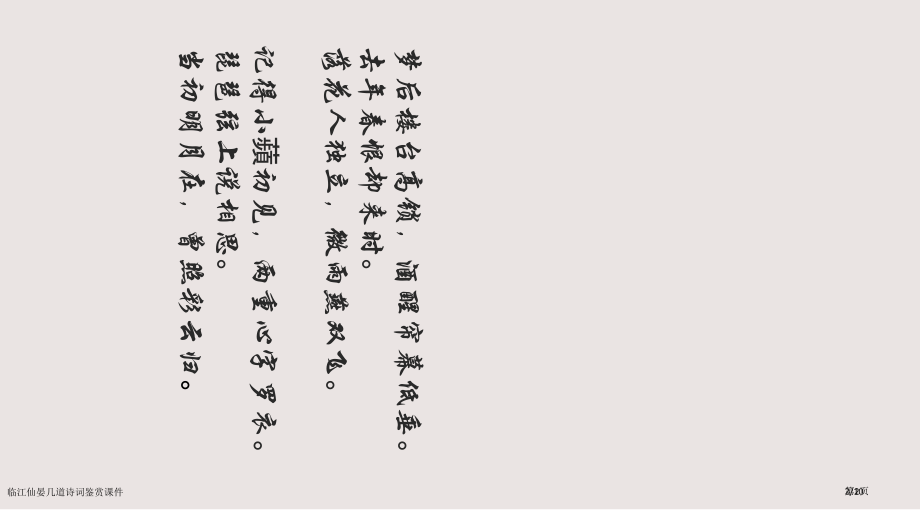 梦后楼台高锁，酒醒帘幕低垂。
去年春恨却来时。
落花人独立，微雨燕双飞。
记得小蘋初见，两重心字罗衣。
琵琶弦上说相思。
当初明月在，曾照彩云归。
临江仙晏几道诗词鉴赏课件